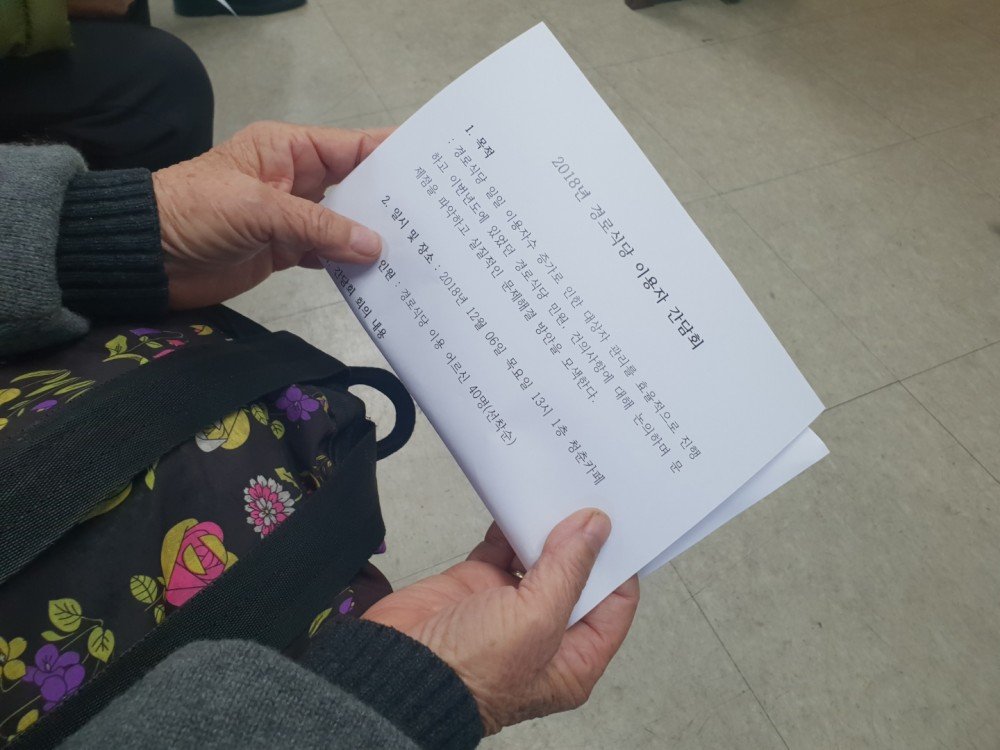 2018년 경로식당 이용자 간담회
1. 목적
: 경로식당 일일 이용자수 증가로 인한 대상자 관리를 효율적으로 진행
하고 이번년도에 있었던 경로식당 민원, 건의사항에 대해 논의하며 문
제점을 파악하고 실질적인 문제해결 방안을 모색한다.
2. 일시 및 장소 : 2018년 12월 06일 목요일 13시 1층 청춘카페
인원 : 경로식당 이용 어르신 40명(선착순)
간담회 회의 내용